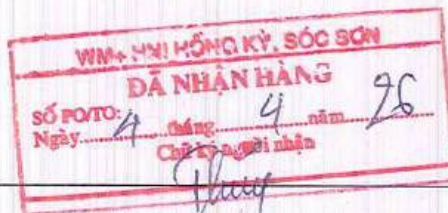 WM+ HNI HỒNG KỲ, SÓC SƠN
ĐÃ NHẬN HÀNG
SỐ PO/TO:
Ngày 4 tháng 4 năm 26
Chữ ký người nhận
Thuý